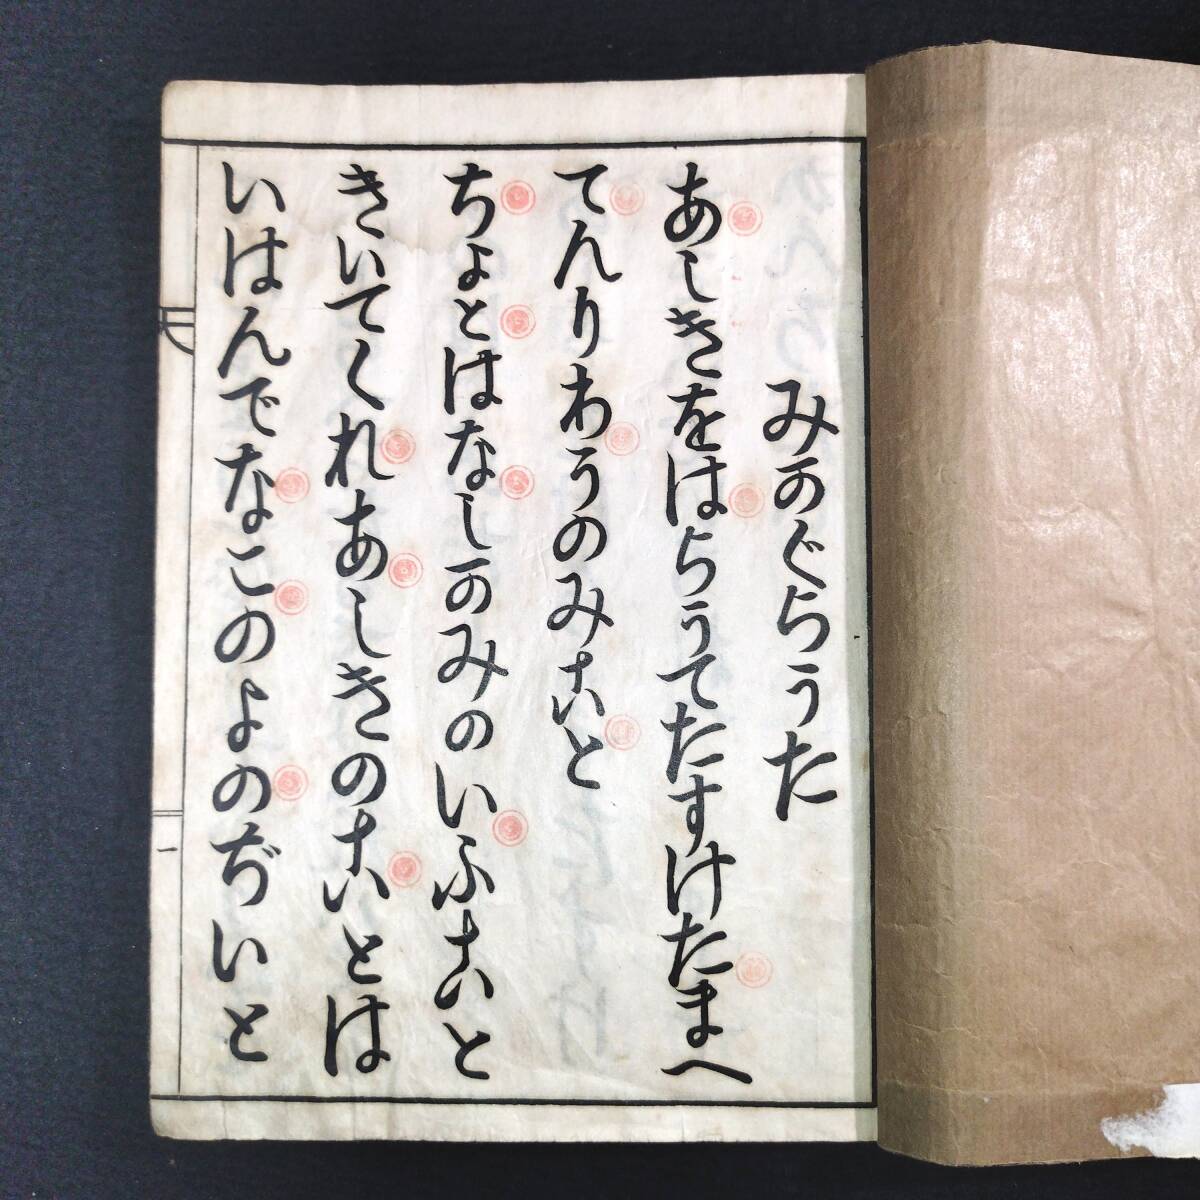 みかぐらうた
あしきをはらうてたすけたまへ
てんりわうのみこと
ちよとはなしかみのいふこと
きいてくれあしきのことは
いはんでなこのよのぢいと
一